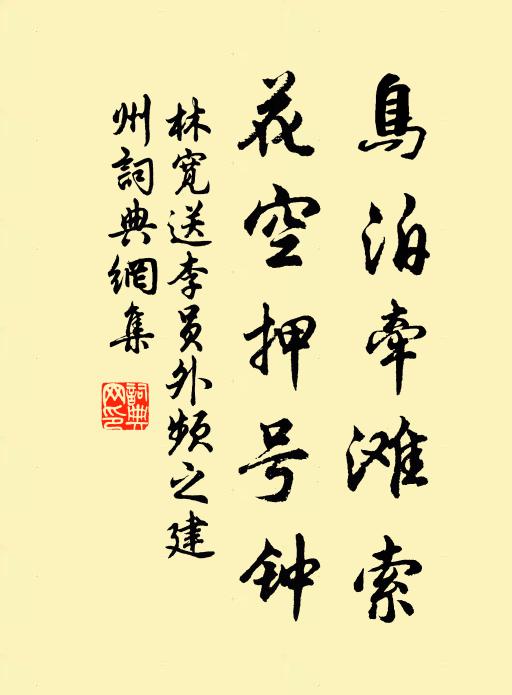 鳥泊牵滩索
花空押号钟
林宽送李员外频之建
州詞典網集
詞典
网印